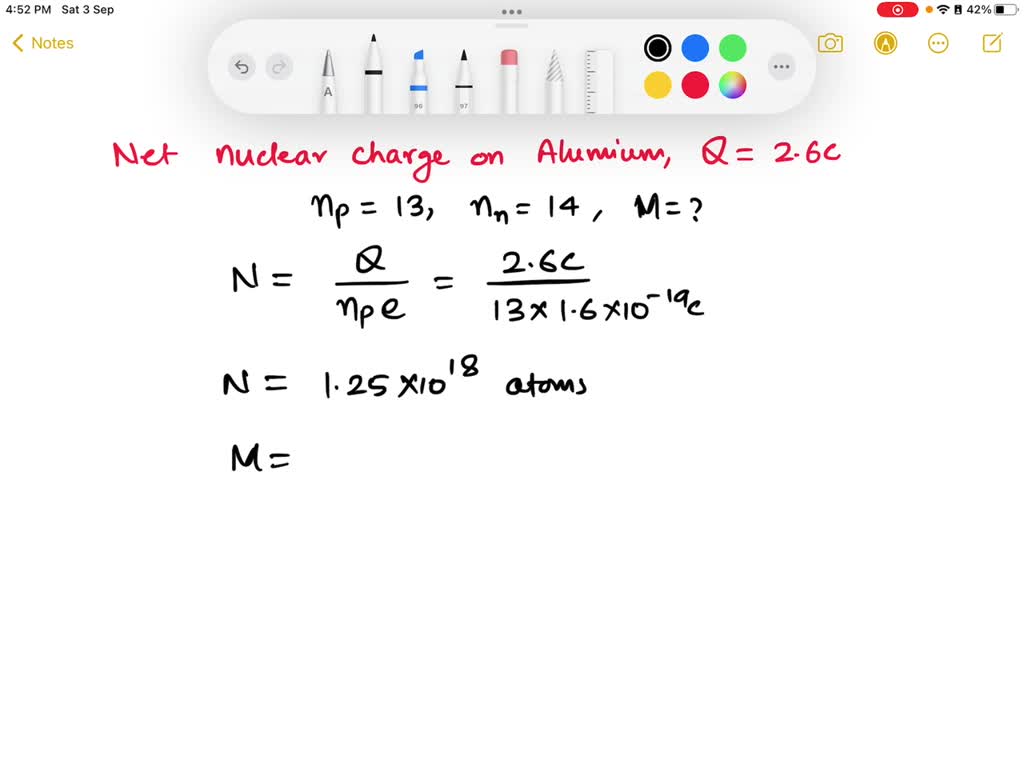 4:52 PM Sat 3 Sep
42%
Notes
A
96
97
Net nuclear charge on Alumium, Q = 2.6c
np = 13, nn = 14, M = ?
N = Q / np e = 2.6c / 13 × 1.6 × 10^-19 c
N = 1.25 × 10^18 atoms
M =